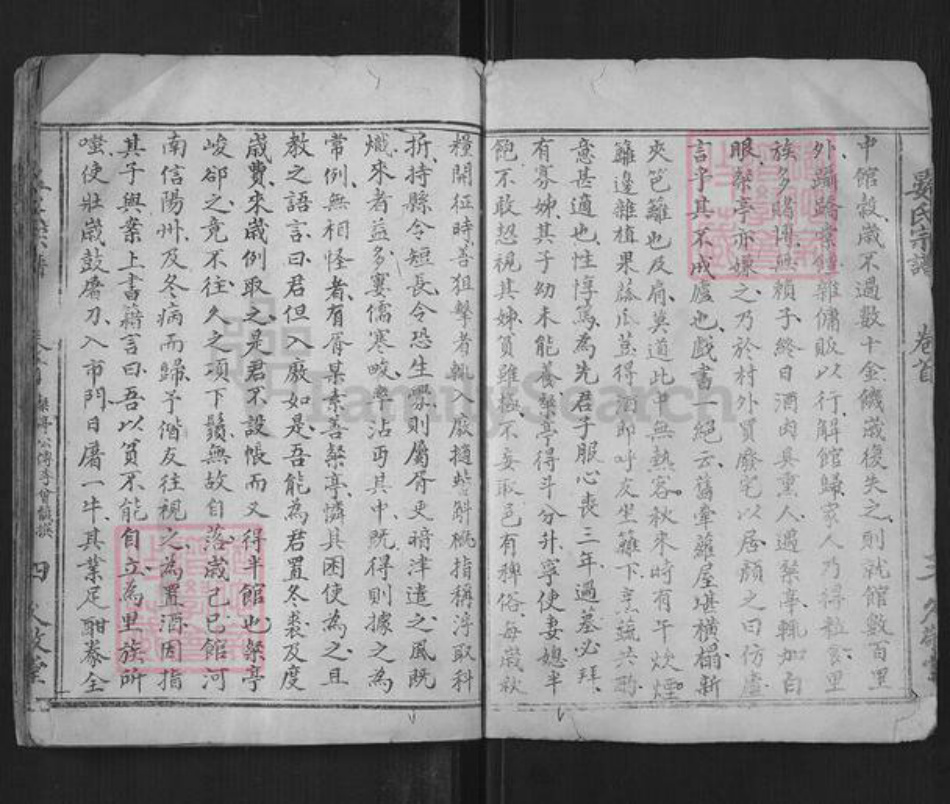 晏氏宗譜
卷首
三
中館穀歲不過數十金饑歲復失之則就館數百里
外躡蹻 雜傭販以行解館歸家人乃得粒食里
族多賭博無賴子終日酒肉具熏人遇粲亭輒加白
眼粲亭亦嫌之乃於村外買廢宅以居顏之曰仿盧
言乎其不成廬也戲書一絕云舊牽蘿屋堪橫榻新
夾笆籬也及肩莫道此中無熱客秋來時有午炊煙
籬邊雜植果蓏瓜荳得酒即呼友坐籬下烹蔬共酌
意甚適也性惇篤為先君子服心喪三年過墓必拜
有寡姊其子幼未能養粲亭得斗分升寧使妻媳半
飽不敢恝視其姊貧雖極不妄取邑有稗俗每歲秋
糧開征時善狙擊者輒入廒攄 斛概指稱浮取科
折持縣令短長令恐生釁則屬胥吏暗津遣之風既
熾來者益多寠儒寒畯率沾丐其中既得則據之為
常例無相怪者有胥某素善粲亭憐其困使為之且
教之語言曰君但入廒如是吾能為君置冬裘及度
歲費來歲例取之是君不設帳而又得半館也粲亭
峻卻之竟不往久之項下鬚無故自落歲己巳館河
南信陽州及冬病而歸予偕友往視之為置酒因指
其子與案上書籍言曰吾以貧不能自立為里族所
嗤使壯歲鼓屠刀入市門日屠一牛其業足酣豢全
卷首
粲亭公傳李曾馥撰
四
FamilySearch